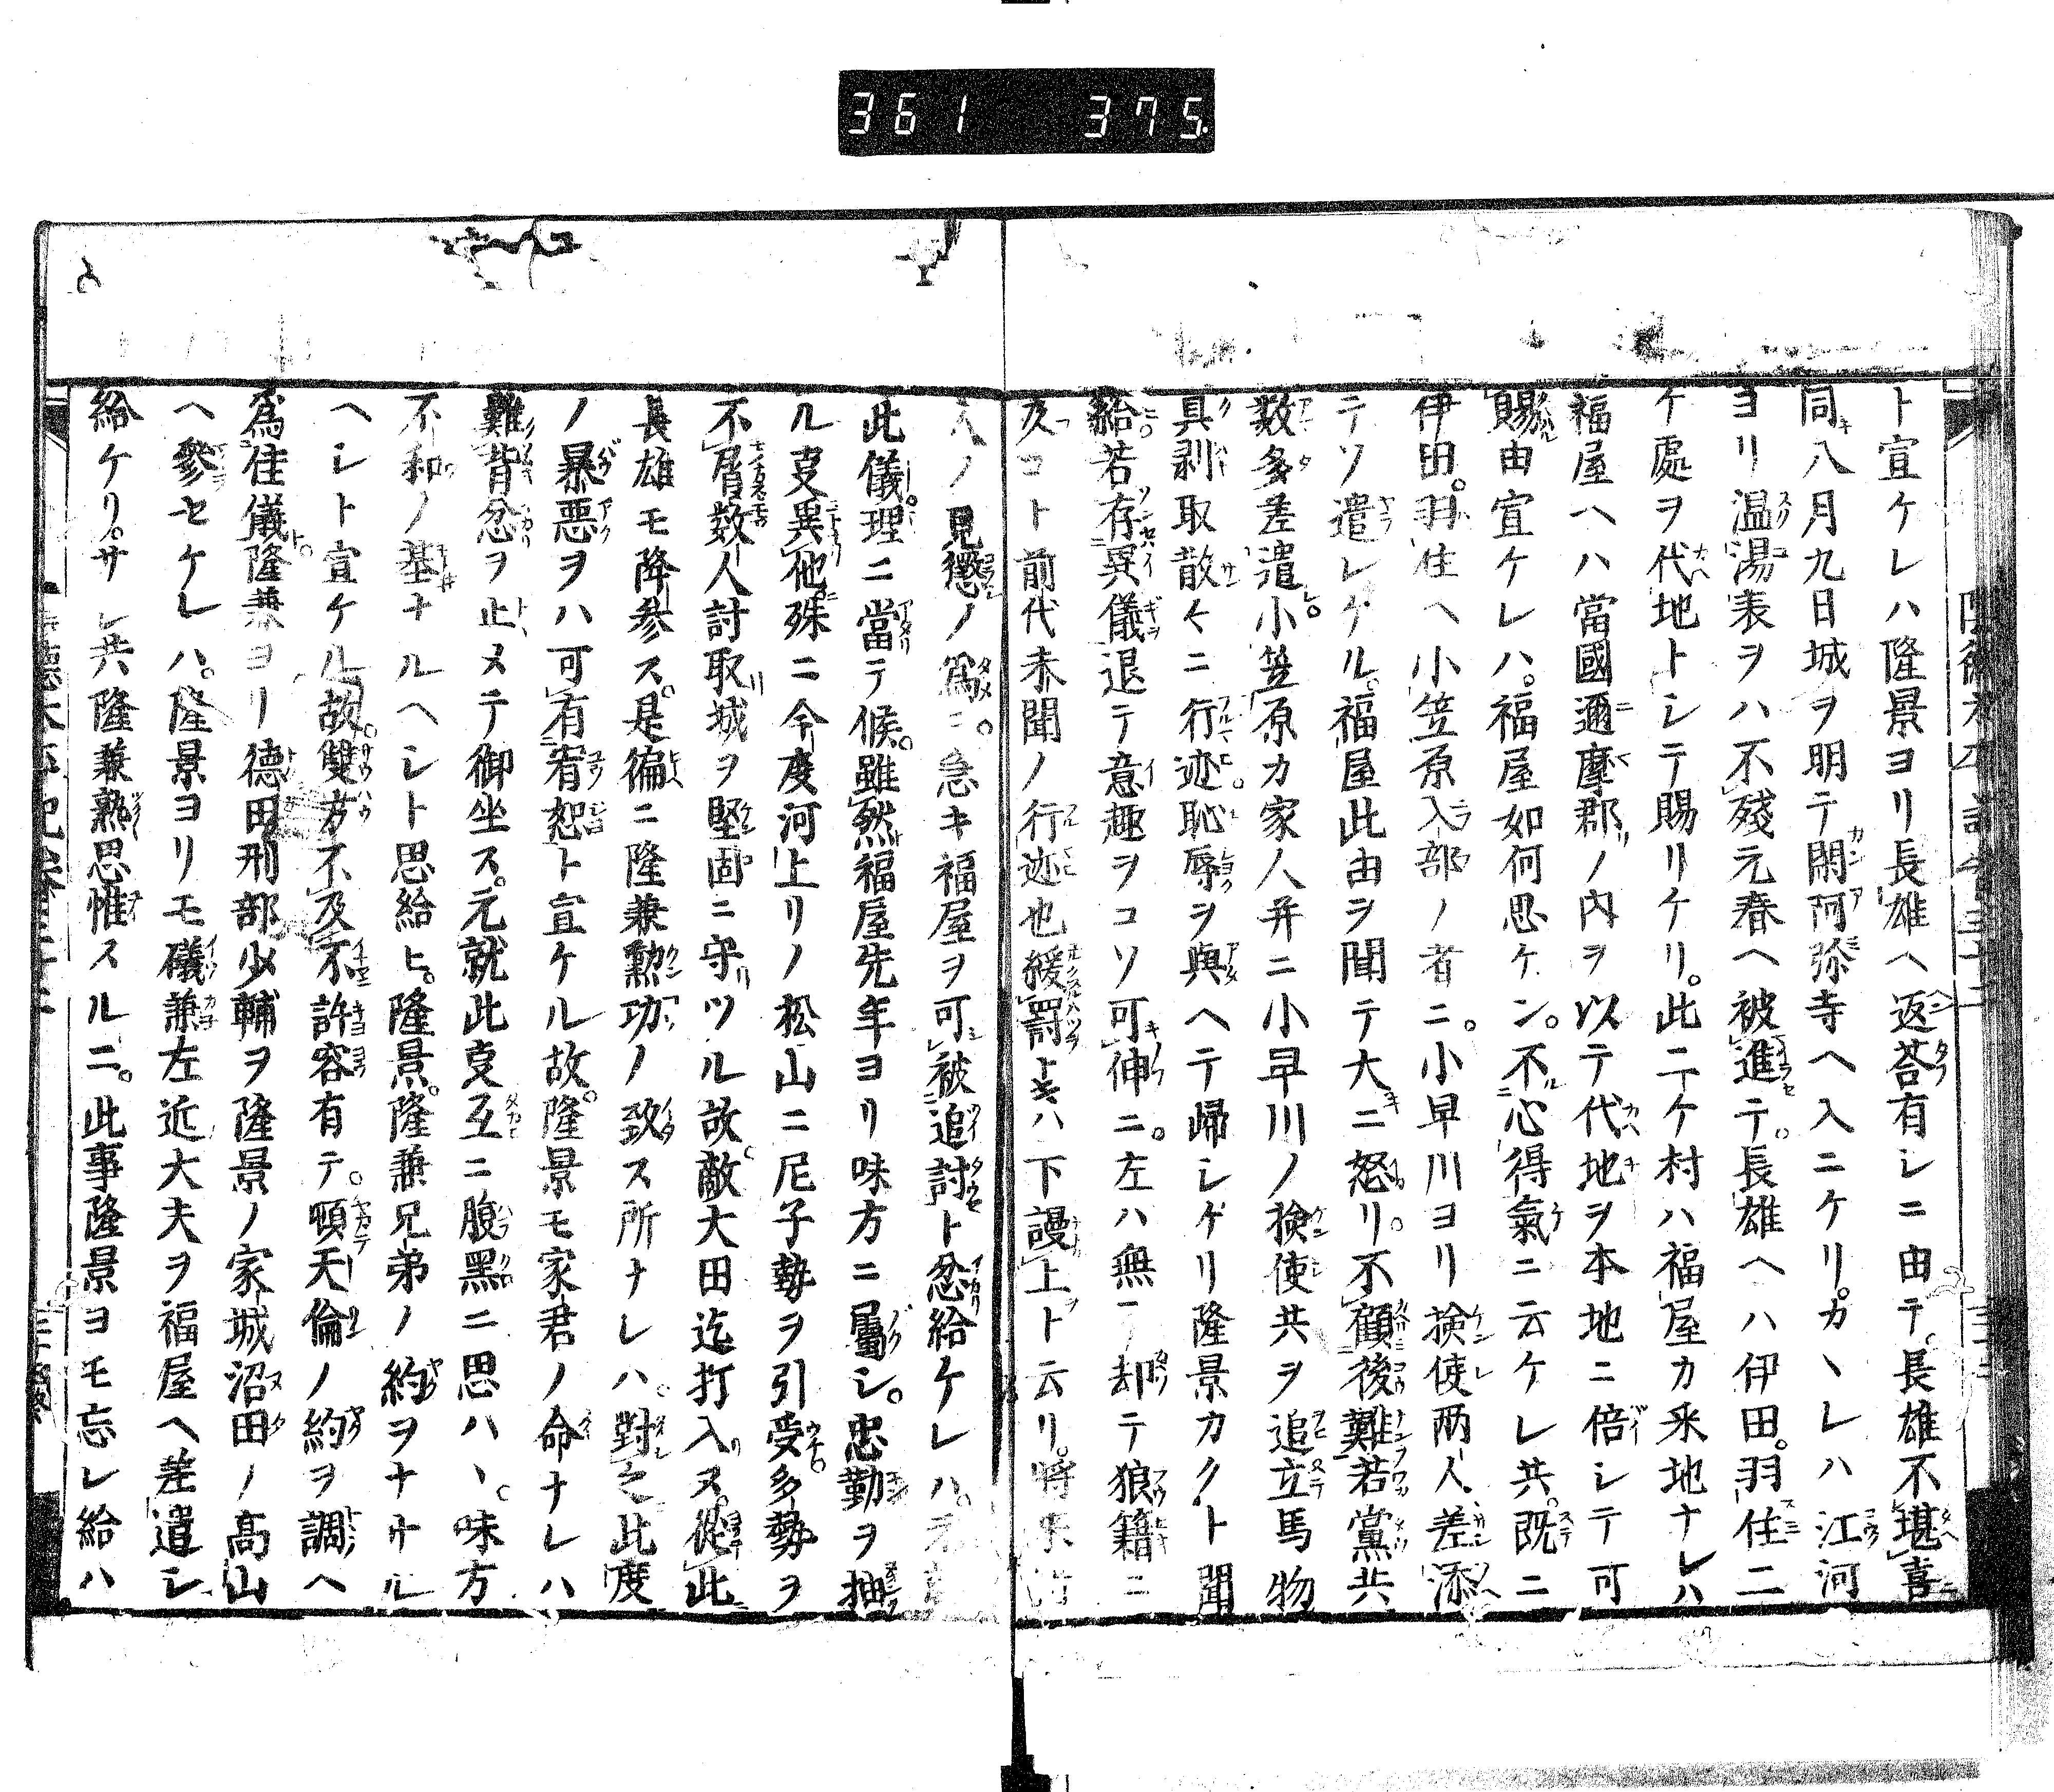 361 375.
ト宣ケレハ隆景ヨリ長雄ヘ返荅有シニ由テ長雄不堪喜
同八月九日城ヲ明テ閑阿弥寺ヘ入ニケリ。カヽレハ江河
ヨリ温湯表ヲハ不殘元春ヘ被進テ。長雄ヘハ伊田。羽住二
ケ處ヲ代地トシテ賜リケリ。此二ケ村ハ福屋カ釆地ナレハ
福屋ヘハ當國邇摩郡ノ内ヲ以テ代地ヲ本地ニ倍シテ可
賜由宣ケレハ。福屋如何思ケン。不心得氣ニ云ケレ共。既ニ
伊田。羽住ヘ小笠原入部ノ者ニ。小早川ヨリ撿使两人差添
テソ遣レケル。福屋此由ヲ聞テ大ニ怒リ。不顧後難若黨共
数多差遣。小笠原カ家人并ニ小早川ノ撿使共ヲ追立馬物
具剥取散々ニ行迹恥辱ヲ與ヘテ歸シケリ隆景カクト聞
給若存異儀退テ意趣ヲコソ可伸ニ。左ハ無〆却テ狼籍ニ
及コト前代未聞ノ行迹也緩罸トキハ下謾上ト云リ。將来
人ノ見懲ノ為ニ。急キ福屋ヲ可被追討ト忿給ケレハ。元
此儀理ニ當テ候。雖然福屋先年ヨリ味方ニ屬シ。忠勤ヲ抽
ル支異他。殊ニ今度河上リノ松山ニ尼子勢ヲ引受多勢ヲ
不屑数人討取城ヲ堅固ニ守ツル故敵大田迄打入ヌ。從此
長雄モ降参ス。是徧ニ隆兼勲功ノ致ス所ナレハ。對之此度
ノ暴惡ヲハ可有宥恕ト宣ケル故。隆景モ家君ノ命ナレハ
難背忿ヲ止メテ御坐ス。元就此支互ニ腹黑ニ思ハヽ。味方
不和ノ基ナルヘシト思給ヒ。隆景。隆兼兄弟ノ約ヲナサル
ヘシト宣ケル故。雙方不及不許容有テ。頓天倫ノ約ヲ調ヘ
為住儀隆兼ヨリ德田刑部少輔ヲ隆景ノ家城沼田ノ高山
ヘ參セケレハ。隆景ヨリモ礒兼左近大夫ヲ福屋ヘ差遣シ
給ケリ。サレ共隆兼熟思惟スルニ。此事隆景ヨモ忘レ給ハ